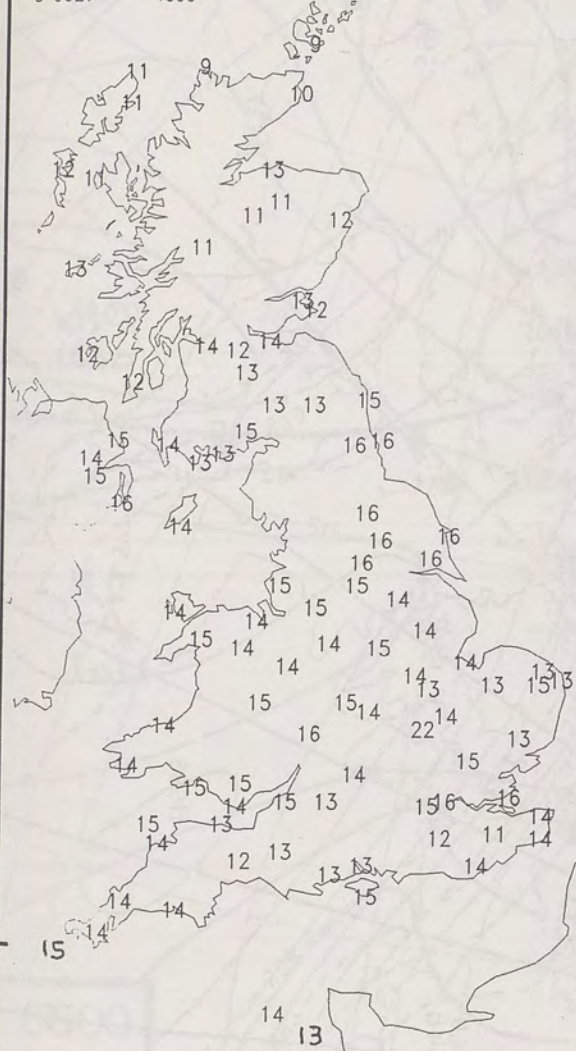 9
11 9
11 10
12 10 13
11 11 12
11
13
13 12
12 14 12 14
12 13
13 13 15
15 14 15 16 16
14 13 13
15
16
14 16
16 16
16 16
15 15
14 15 14
14 14
15 14 14 15
14 14 13
14 13 13 15 13
15 15 14 14
14 16 22 13
14 15
15 15 14
14 15 13 15 16 16
15 13 14
14 12 11 14
12 13
13 13 14
15
14 14
14
15
14
13